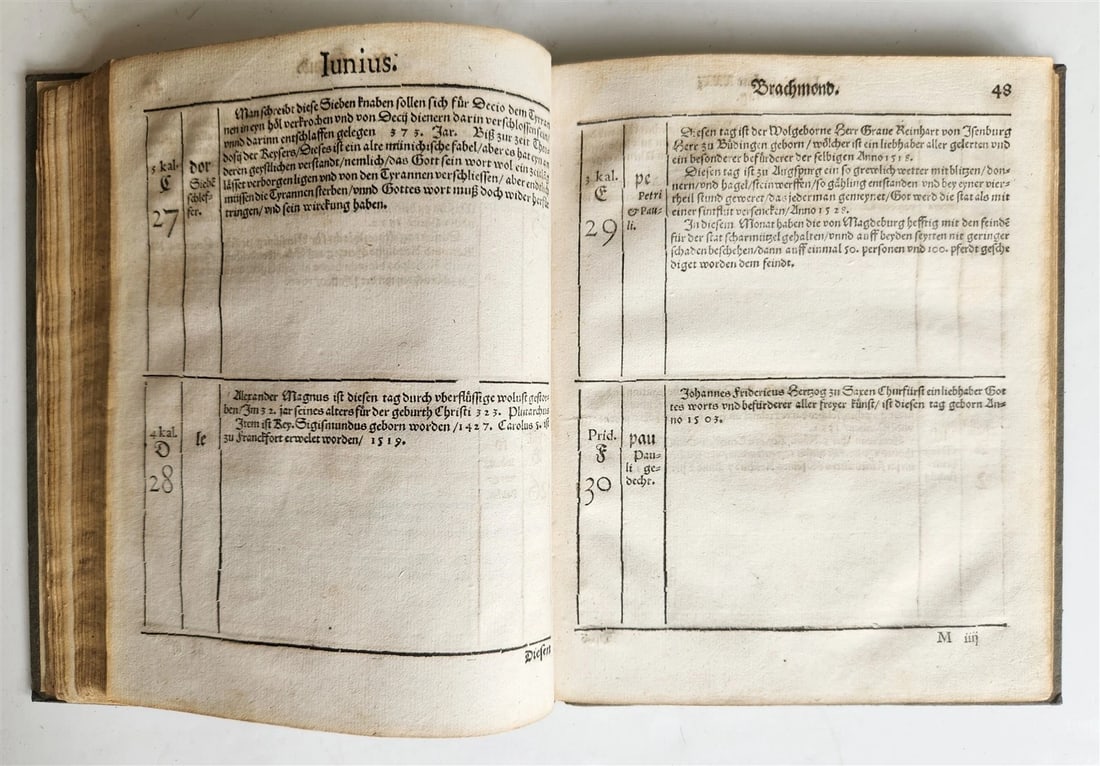 Iunius.
Man schreibt diese Sieben knaben sollen sich für Decio dem Tyran
nen in eyn höl verkrochen vnd von Decij dienern darin verschlossen sein/
vnnd darinn entschlaffen gelegen 373. Jar. Biß zur zeit Theo
dosij der Keysers/Dieses ist ein alte münichische fabel/aber es hat eyn an
deren geystlichen verstandt/nemlich/das Gott sein wort wol ein zeitlag
lässet verborgen ligen vnd von den Tyrannen verschliessen/aber endtlich
müssen die Tyrannen sterben/vnnd Gottes wort muß doch wider herfür
tringen/vnd sein wirckung haben.
5 kal.
C
27
dor
Siebē
schlef-
fer.
Alexander Magnus ist diesen tag durch vberflüssige wolust gestor-
ben/Im 32. jar seines alters für der geburth Christi 323. Plutarchus
Item ist Key. Sigismundus geborn worden/1427. Carolus 5. ist
zu Franckfort erwelet worden/ 1519.
4 kal.
D
28
le
Diesen
Brachmond.
48
Diesen tag ist der Wolgeborne Herr Graue Reinhart von Isenburg
Herr zu Büdingen geborn/wölcher ist ein liebhaber aller gelerten vnd
ein besonderer befürderer der selbigen Anno 1518.
Diesen tag ist zu Augspurg ein so grewlich wetter mit blitzen/don-
nern/vnd hagel/stein werffen/so gähling entstanden vnd bey eyner vier-
theil stund geweret/das jederman gemeynet/Got werd die stat als mit
einer sintflut versencken/Anno 1528.
In diesem Monat haben die von Magdeburg hefftig mit den feindē
für der stat scharmützel gehalten/vnnd auff beyden seytten nie geringer
schaden beschehen/dann auff einmal 50. personen vnd 100. pferdt gesche
diget worden dem feindt.
3 kal.
E
29
pe
Petri
& Pau-
li.
Johannes Fridericus Hertzog zu Saxen Churfürst ein liebhaber Got
tes worts vnd befürderer aller freyer künst/ ist diesen tag geborn An-
no 1503.
Prid.
F
30
pau
Pau-
li ge-
decht.
M iiij